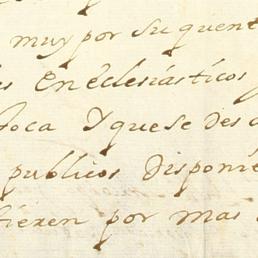 muy por su quent
es En eclesiásticos y
toca Y que se des c
publicos disponie
tieren por mas